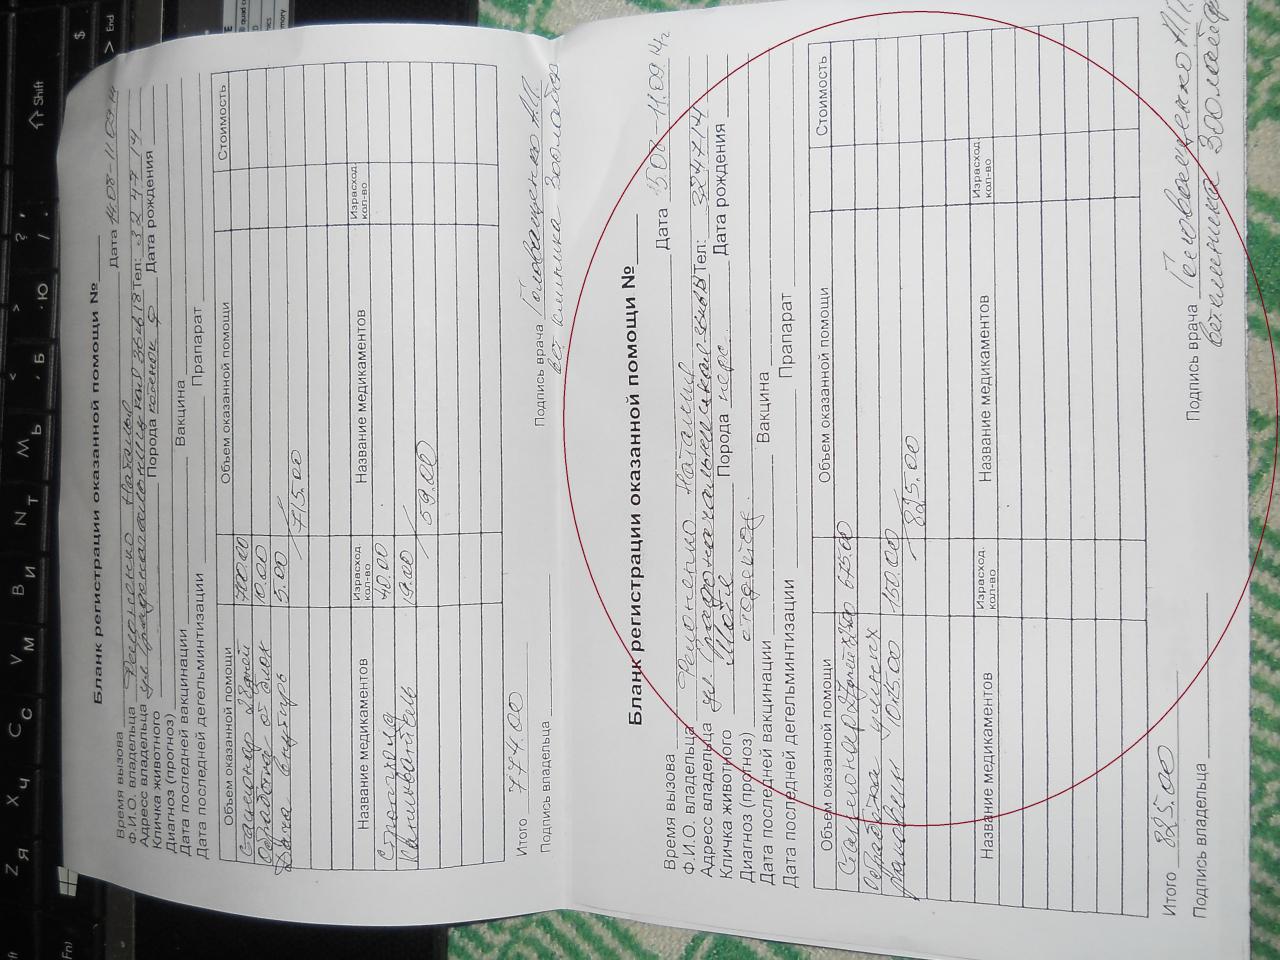 Бланк регистрации оказанной помощи №
Время вызова Дата 14.08-11.09.14
Ф.И.О. владельца Наталия
Адрес владельца ул Градоначальницкая Тел: 32 47 14
Кличка животного Порода Дата рождения
Диагноз (прогноз)
Дата последней вакцинации Вакцина
Дата последней дегельминтизации Прапарат
Объем оказанной помощи Объем оказанной помощи Стоимость
Стационар 28 дней 700.00
Обработка от блох 10.00
Дача внутрь 5.00
715.00
Название медикаментов Израсход. кол-во Название медикаментов Израсход. кол-во
Стронгхолд 40.00
19.00
59.00
Итого 774.00
Подпись владельца Подпись врача Головащенко А.П.
вет клиника Зоолайф
Бланк регистрации оказанной помощи №
Время вызова Дата 15.08-11.09.14г
Ф.И.О. владельца Наталия
Адрес владельца ул Градоначальницкая Тел: 324714
Кличка животного Мотя Порода перс. Дата рождения
Диагноз (прогноз) отодектоз.
Дата последней вакцинации Вакцина
Дата последней дегельминтизации Прапарат
Объем оказанной помощи Объем оказанной помощи Стоимость
Стационар 27дней х 25.00 675.00
Обработка ушек
10х15.00 150.00
825.00
Название медикаментов Израсход. кол-во Название медикаментов Израсход. кол-во
Итого 825.00
Подпись владельца Подпись врача Головащенко А.П.
ветклиника Зоолайф
$
> End
⇧ Shift
Fn